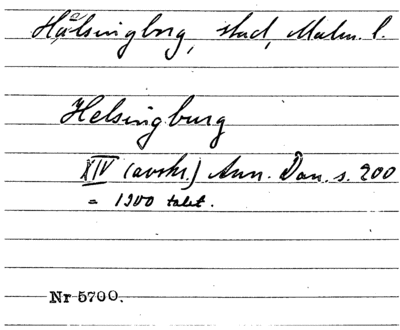 Hälsingborg, stad, Malm. l.
Helsingburg
XIV (avskr.) Ann. Dan. s. 200
= 1300 talet.
Nr 5700.